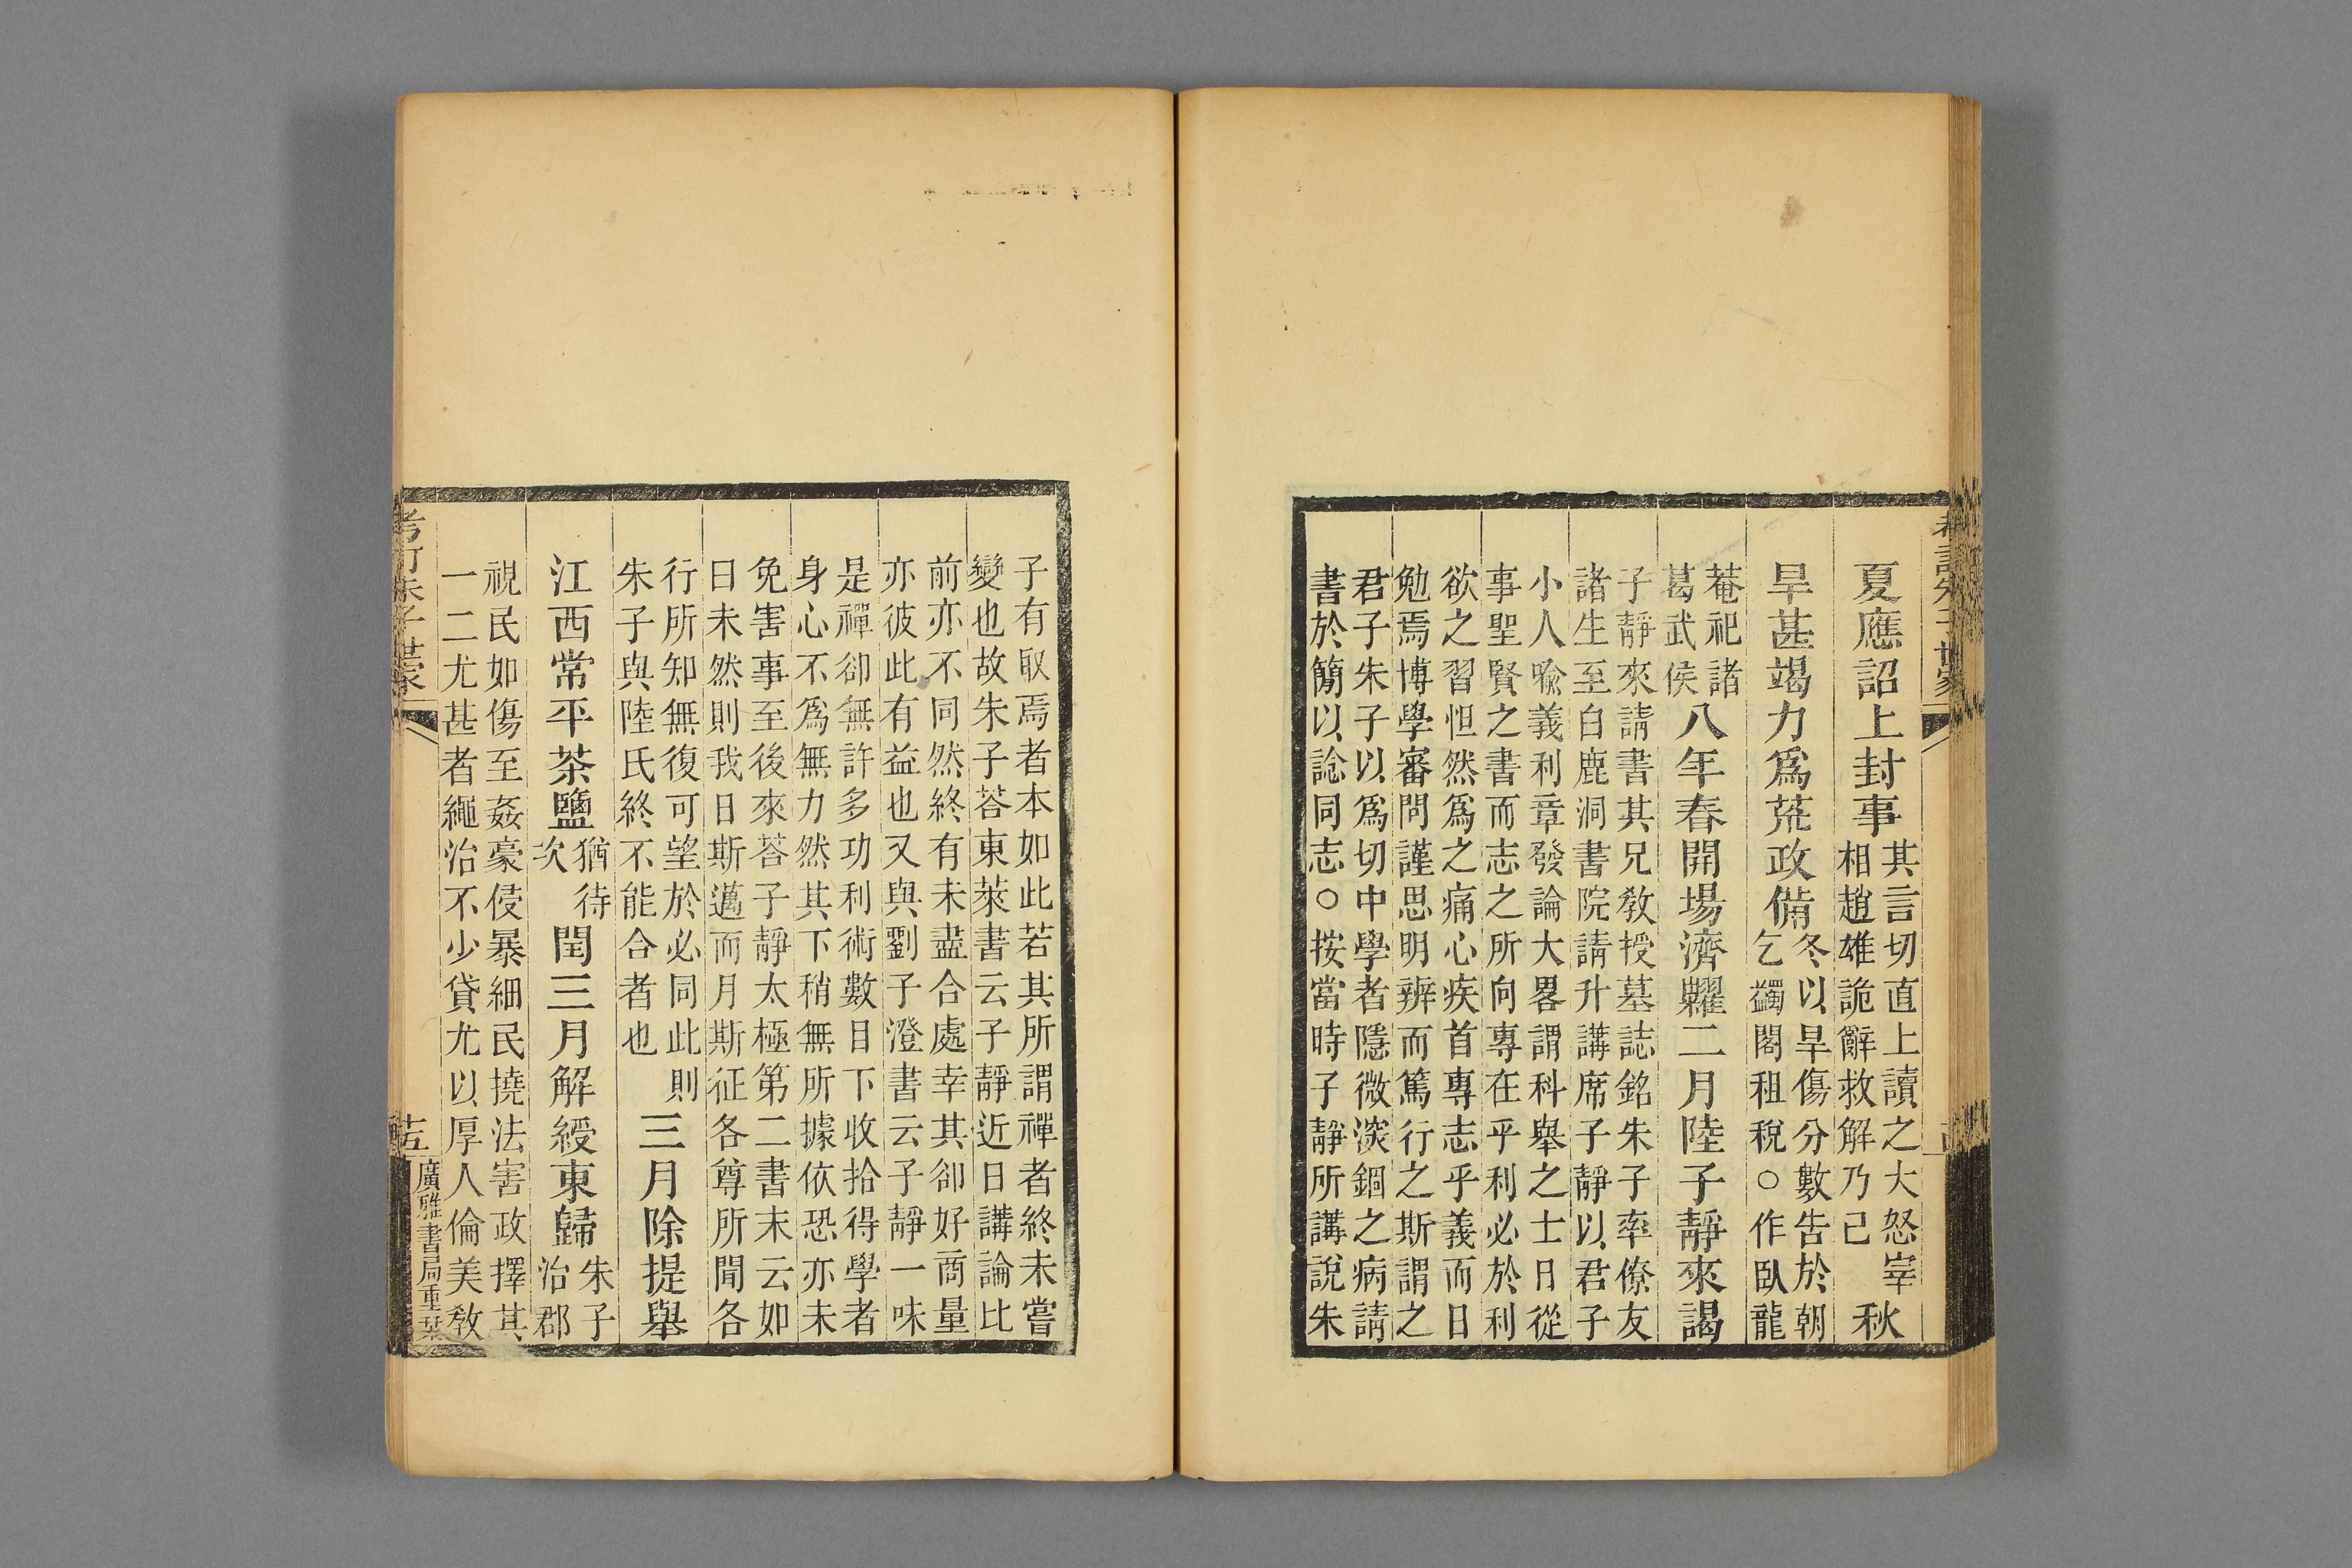 考訂朱子世家
夏應詔上封事其言切直上讀之大怒宰相趙雄詭辭救解乃已秋
旱甚竭力爲荒政備冬以旱傷分數告於朝乞蠲閣租稅○作臥龍
菴祀諸葛武侯八年春開場濟糶二月陸子靜來謁
子靜來請書其兄敎授墓誌銘朱子率僚友
諸生至白鹿洞書院請升講席子靜以君子
小人喩義利章發論大畧謂科舉之士日從
事聖賢之書而志之所向專在乎利必於利
欲之習怛然爲之痛心疾首專志乎義而日
勉焉博學審問謹思明辨而篤行之斯謂之
君子朱子以爲切中學者隱微深錮之病請
書於簡以諗同志○按當時子靜所講說朱
子有取焉者本如此若其所謂禪者終未嘗
變也故朱子荅東萊書云子靜近日講論比
前亦不同然終有未盡合處幸其卻好商量
亦彼此有益也又與劉子澄書云子靜一味
是禪卻無許多功利術數目下收拾得學者
身心不爲無力然其下稍無所據依恐亦未
免害事至後來荅子靜太極第二書末云如
日未然則我日斯邁而月斯征各尊所聞各
行所知無復可望於必同此則朱子與陸氏終不能合者也三月除提舉
江西常平茶鹽猶待次閏三月解綬東歸朱子治郡
視民如傷至姦豪侵暴細民撓法害政擇其
一二尤甚者繩治不少貸尤以厚人倫美敎
考訂朱子世家
十五
廣雅書局重栞